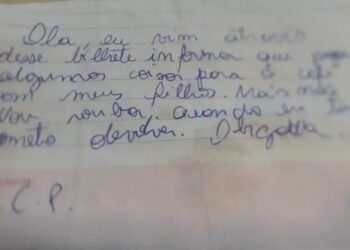 Ola, eu vim através
desse bilhete informar que
algumas coisas para o café
com meus filhos. Mais
vou roubar. Quando eu
prometo devolver. Obrigada.
C.P.